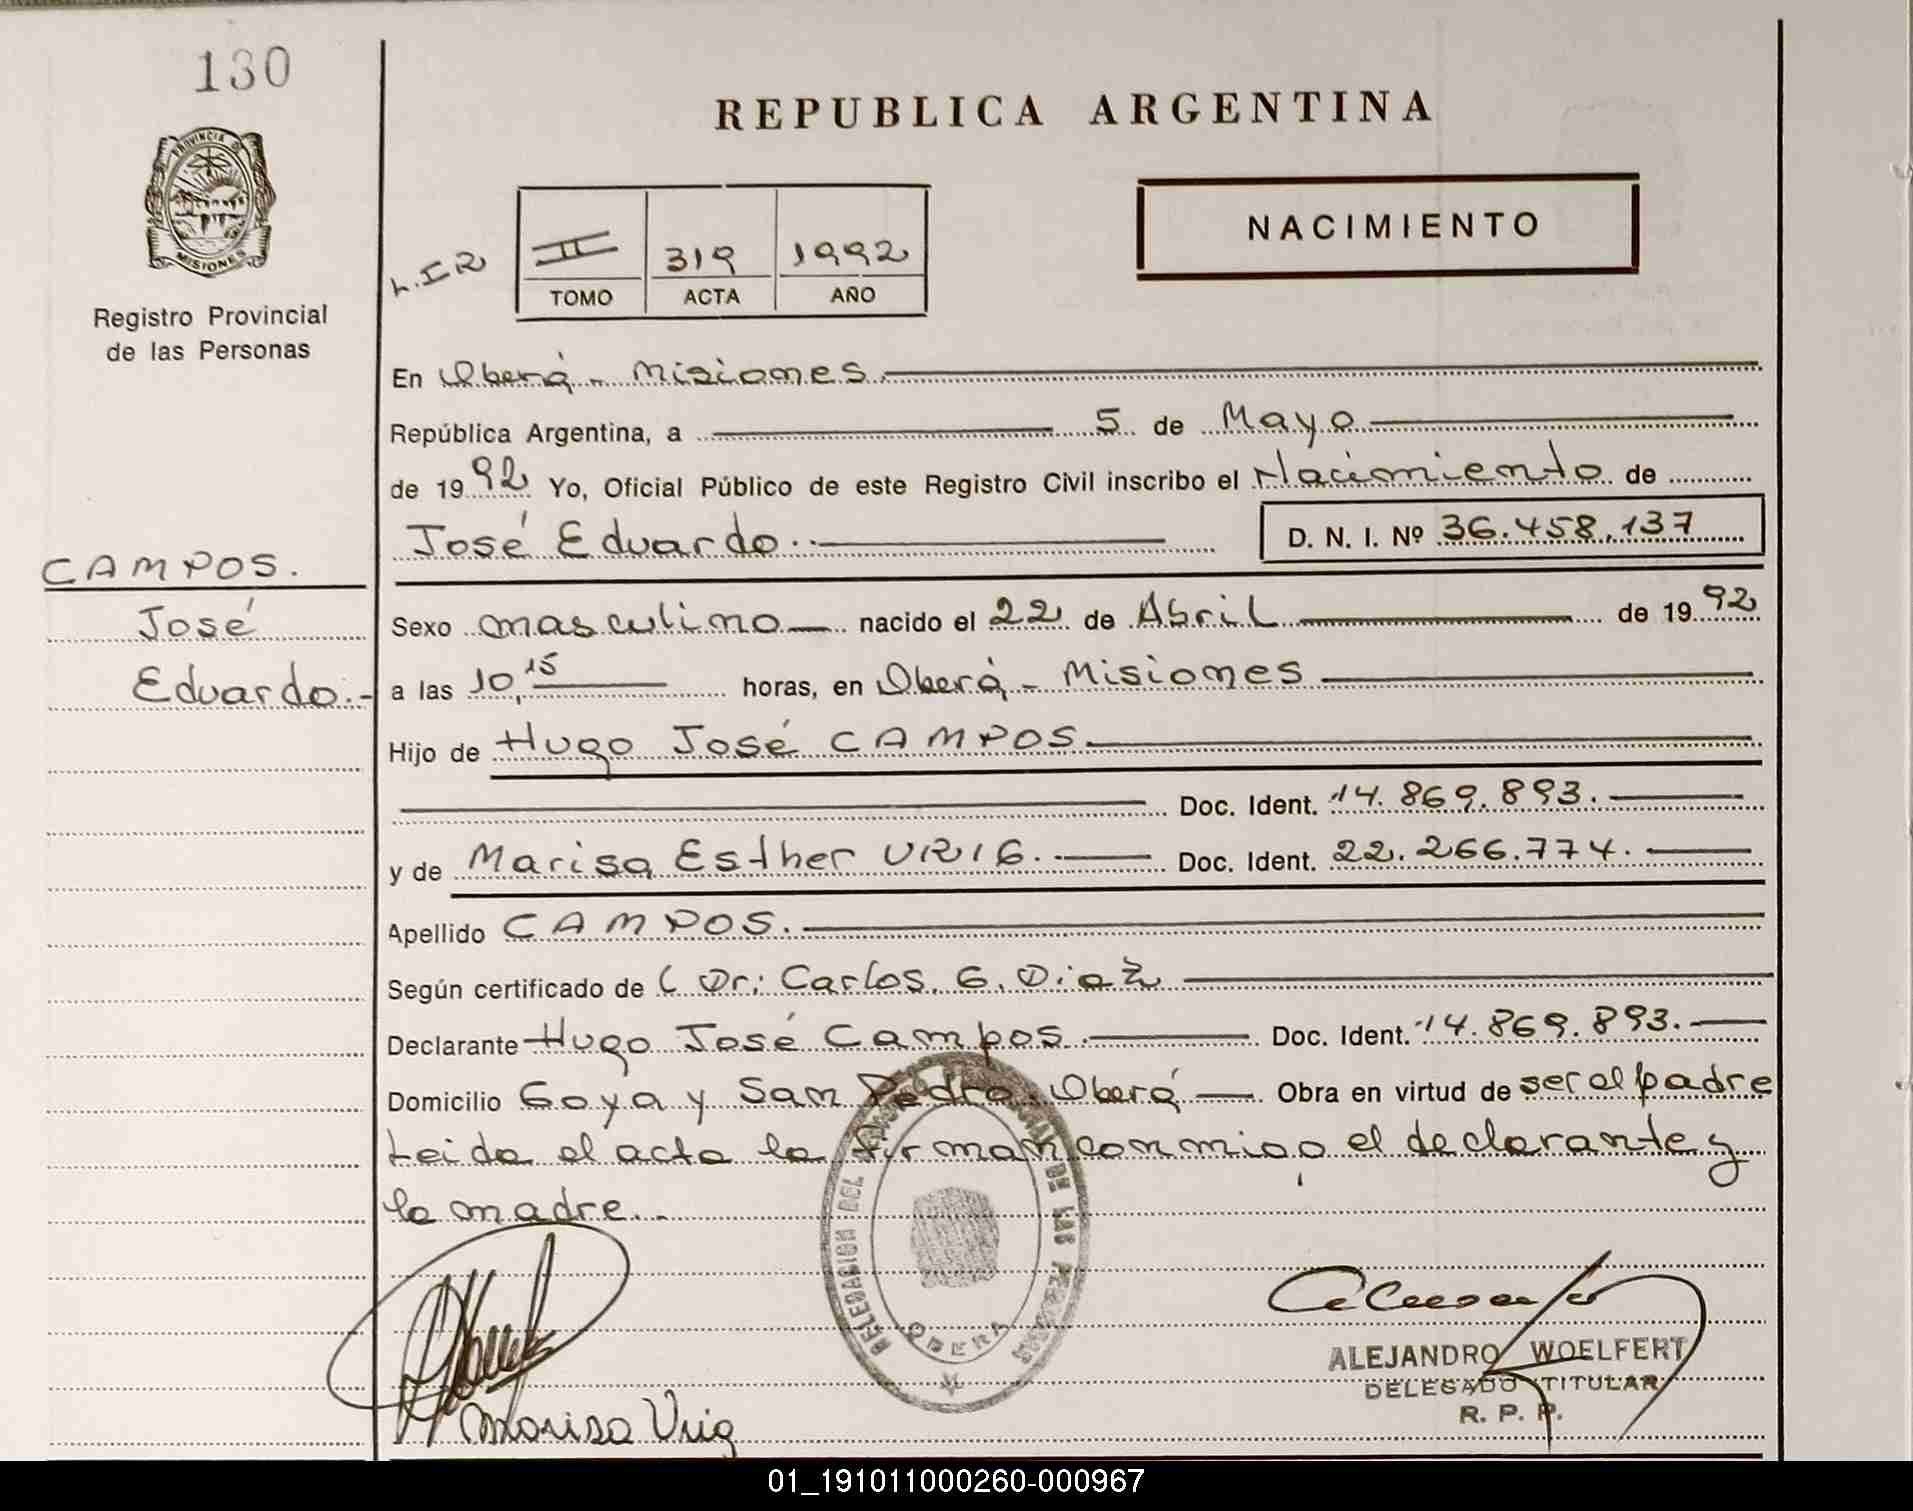 130
REPUBLICA ARGENTINA
PROVINCIA DE
MISIONES
Registro Provincial
de las Personas
NACIMIENTO
II 319 1992
TOMO ACTA AÑO
En Oberá - Misiones.
República Argentina, a 5 de Mayo
de 1992 Yo, Oficial Público de este Registro Civil inscribo el Nacimiento de
José Eduardo.- D. N. I. Nº 36.458.137
CAMPOS.
José
Eduardo.-
Sexo masculino nacido el 22 de Abril de 1992
a las 10,15 horas, en Oberá - Misiones
Hijo de Hugo José CAMPOS
Doc. Ident. 14.869.893.
y de Marisa Esther URIG. Doc. Ident. 22.266.774.
Apellido CAMPOS.
Según certificado de ( Dr: Carlos. G. Diaz
Declarante Hugo José Campos Doc. Ident. 14.869.893.
Domicilio Goya y San Pedro. Oberá Obra en virtud de ser el padre
Leida el acta la firman conmigo el declarante y
la madre.-
DELEGACION DEL DE LAS PERSONAS
OBERA
Marisa Urig
ALEJANDRO WOELFERT
DELEGADO TITULAR
R. P. P.
01_191011000260-000967